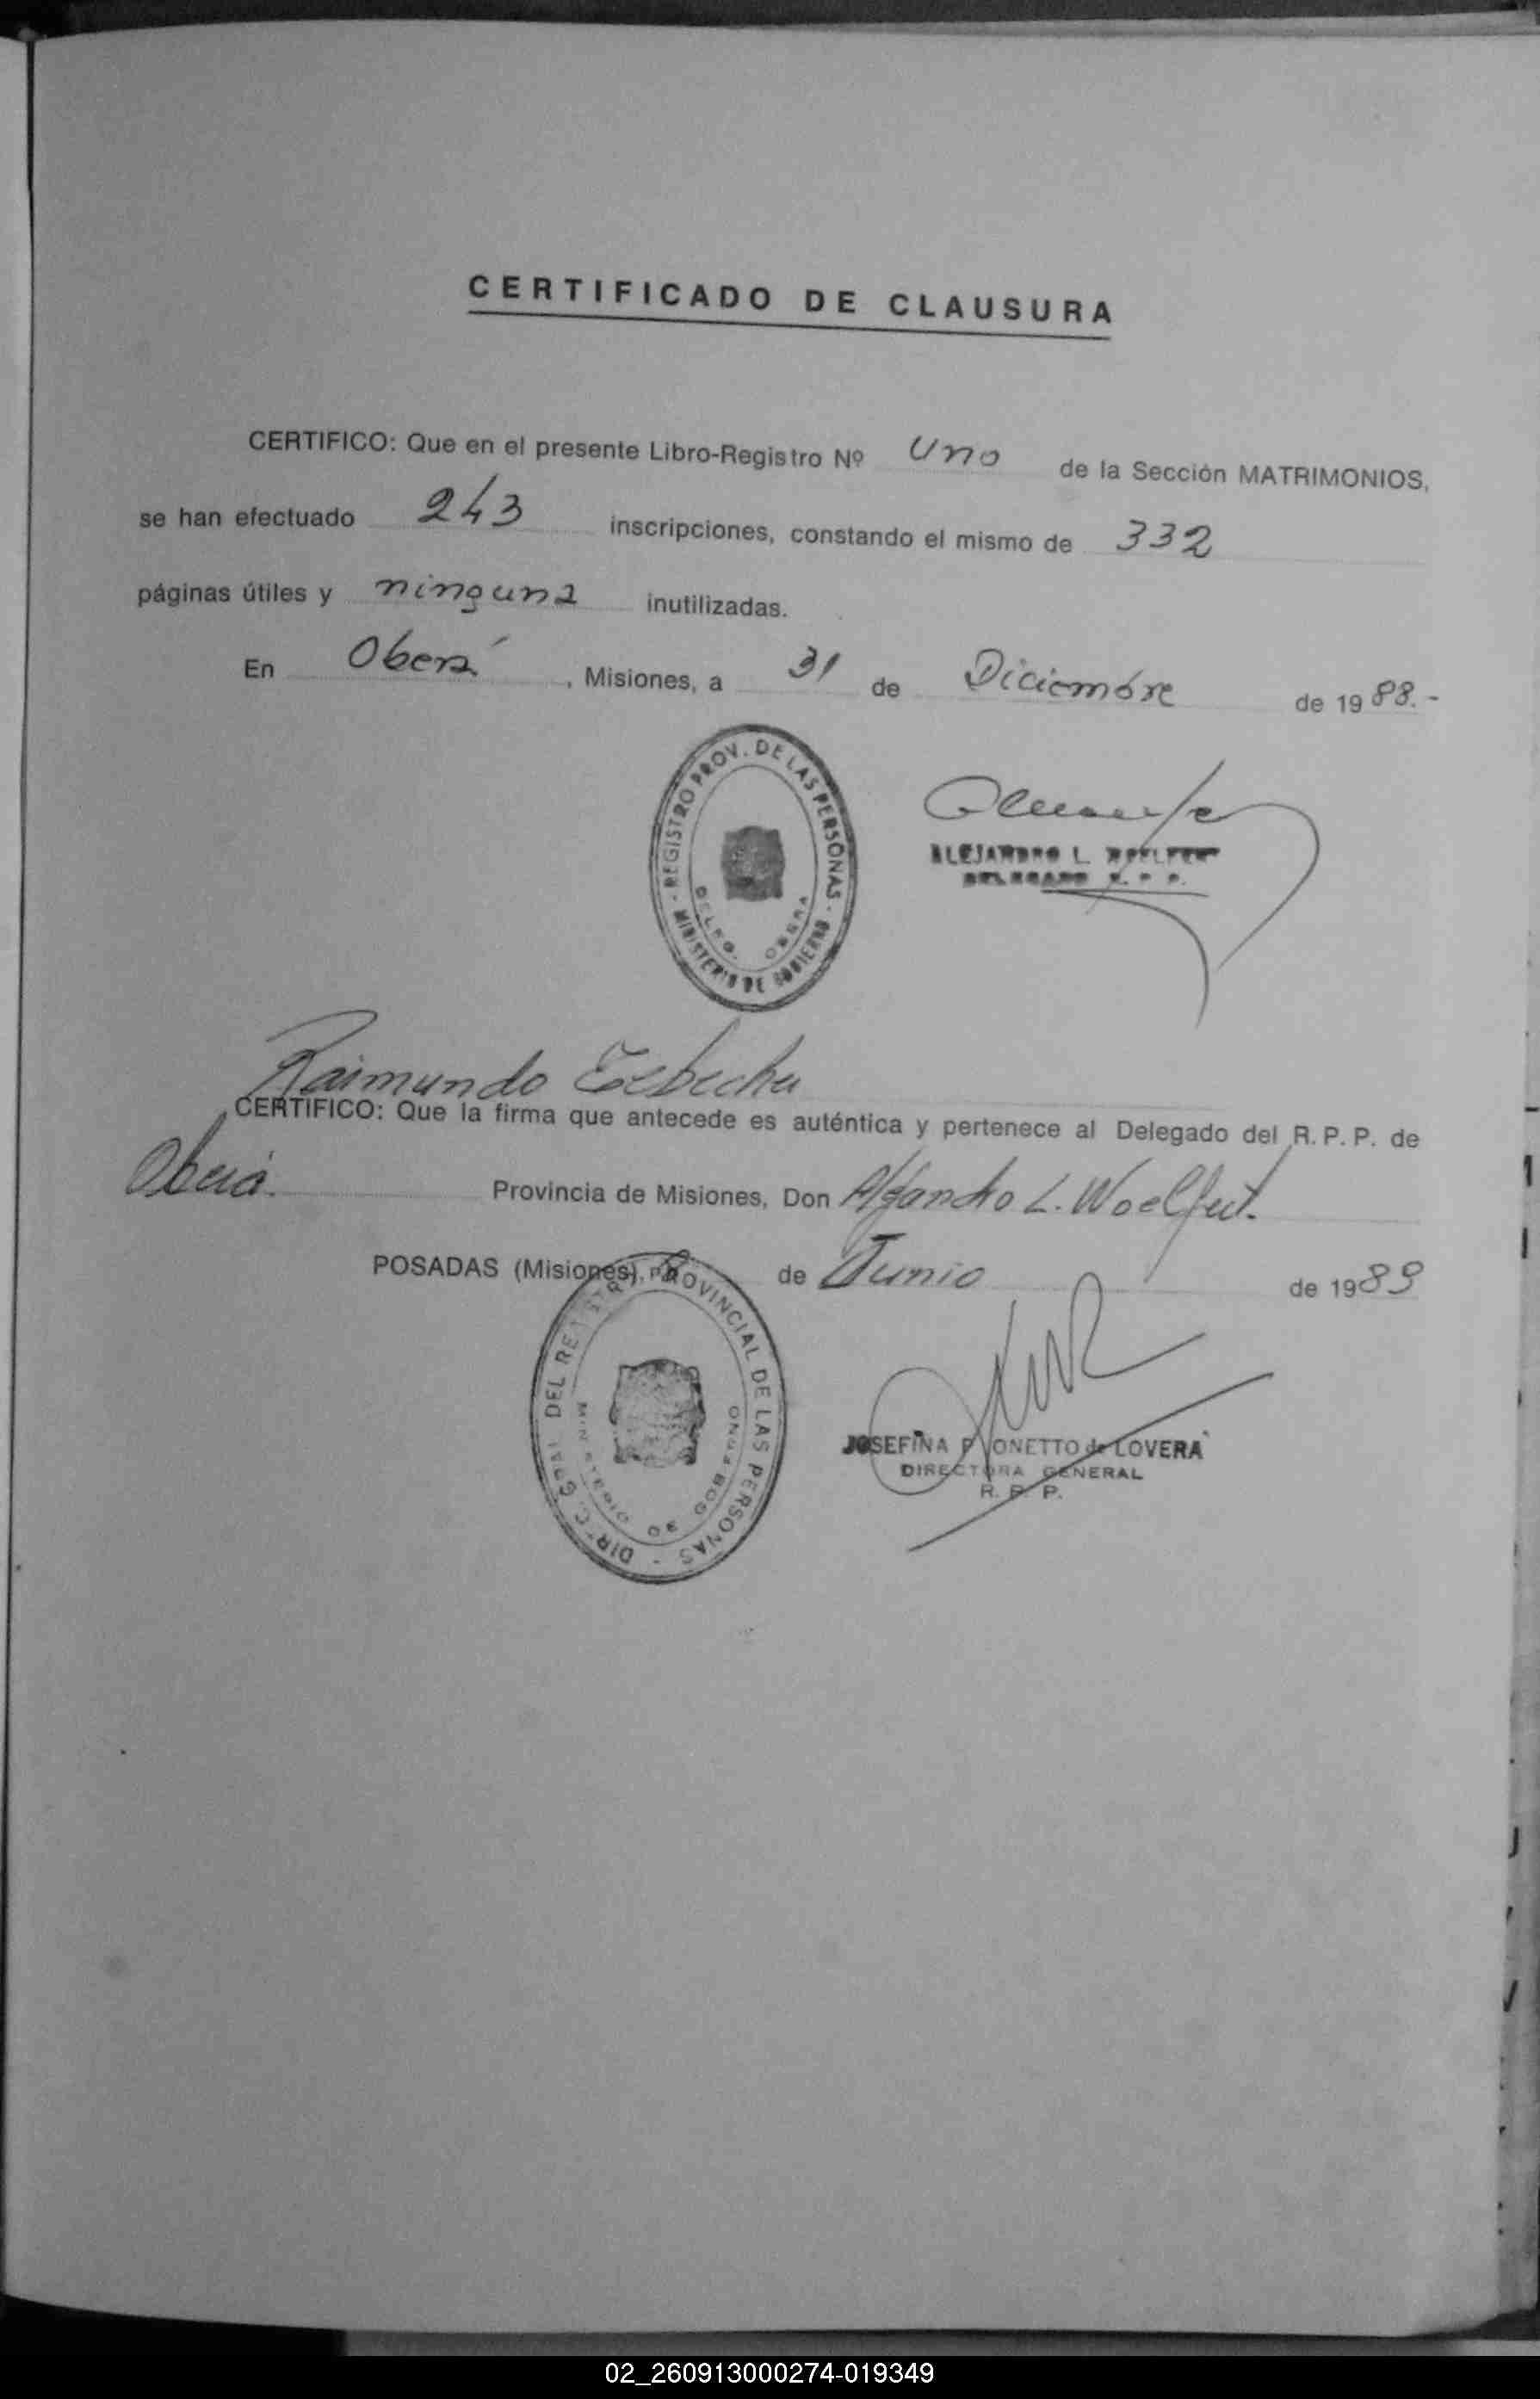 CERTIFICADO DE CLAUSURA
CERTIFICO: Que en el presente Libro-Registro Nº Uno de la Sección MATRIMONIOS,
se han efectuado 243 inscripciones, constando el mismo de 332
páginas útiles y ninguna inutilizadas.
En Oberá, Misiones, a 31 de Diciembre de 1988.-
- REGISTRO PROV. DE LAS PERSONAS -
MINISTERIO DE GOBIERNO
DELEG. OBERA
ALEJANDRO L. WOELFERT
DELEGADO R. P. P.
Raimundo
CERTIFICO: Que la firma que antecede es auténtica y pertenece al Delegado del R. P. P. de
Oberá. Provincia de Misiones, Don Alejandro L. Woelfert.
POSADAS (Misiones), de Junio de 1989
DIREC. GRAL. DEL REGISTRO PROVINCIAL DE LAS PERSONAS -
MINISTERIO DE GOBIERNO
JOSEFINA ONETTO de LOVERA
DIRECTORA GENERAL
R. P. P.
02_260913000274-019349